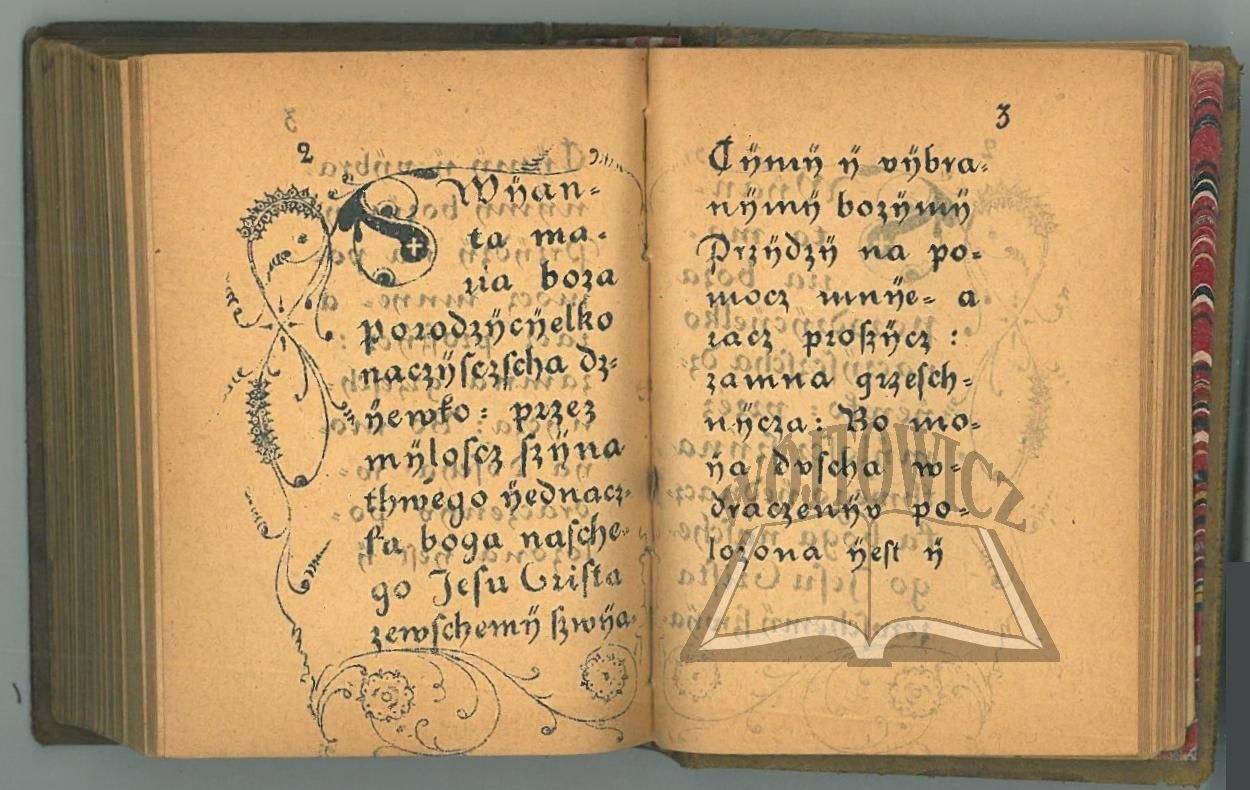 2
SWÿan-
ta ma-
ria boza
porodzÿcÿelko
naczÿſczſcha dz-
ÿewko: przez
mÿloſcz ſzÿna
thwego ÿednacz-
ka boga naſche-
go Jeſu Criſta
zewſchemÿ ſzwÿa-
3
Cÿmÿ ÿ vÿbra-
nÿmÿ bozÿmÿ
Przÿdzÿ na po-
mocz mnÿe- a
racz proſzÿcz:
zamna grzeſch-
nÿcza: Bo mo-
ÿa dvſcha w-
draczenÿv po-
lozona ÿeſt ÿ
WÓJTOWICZ